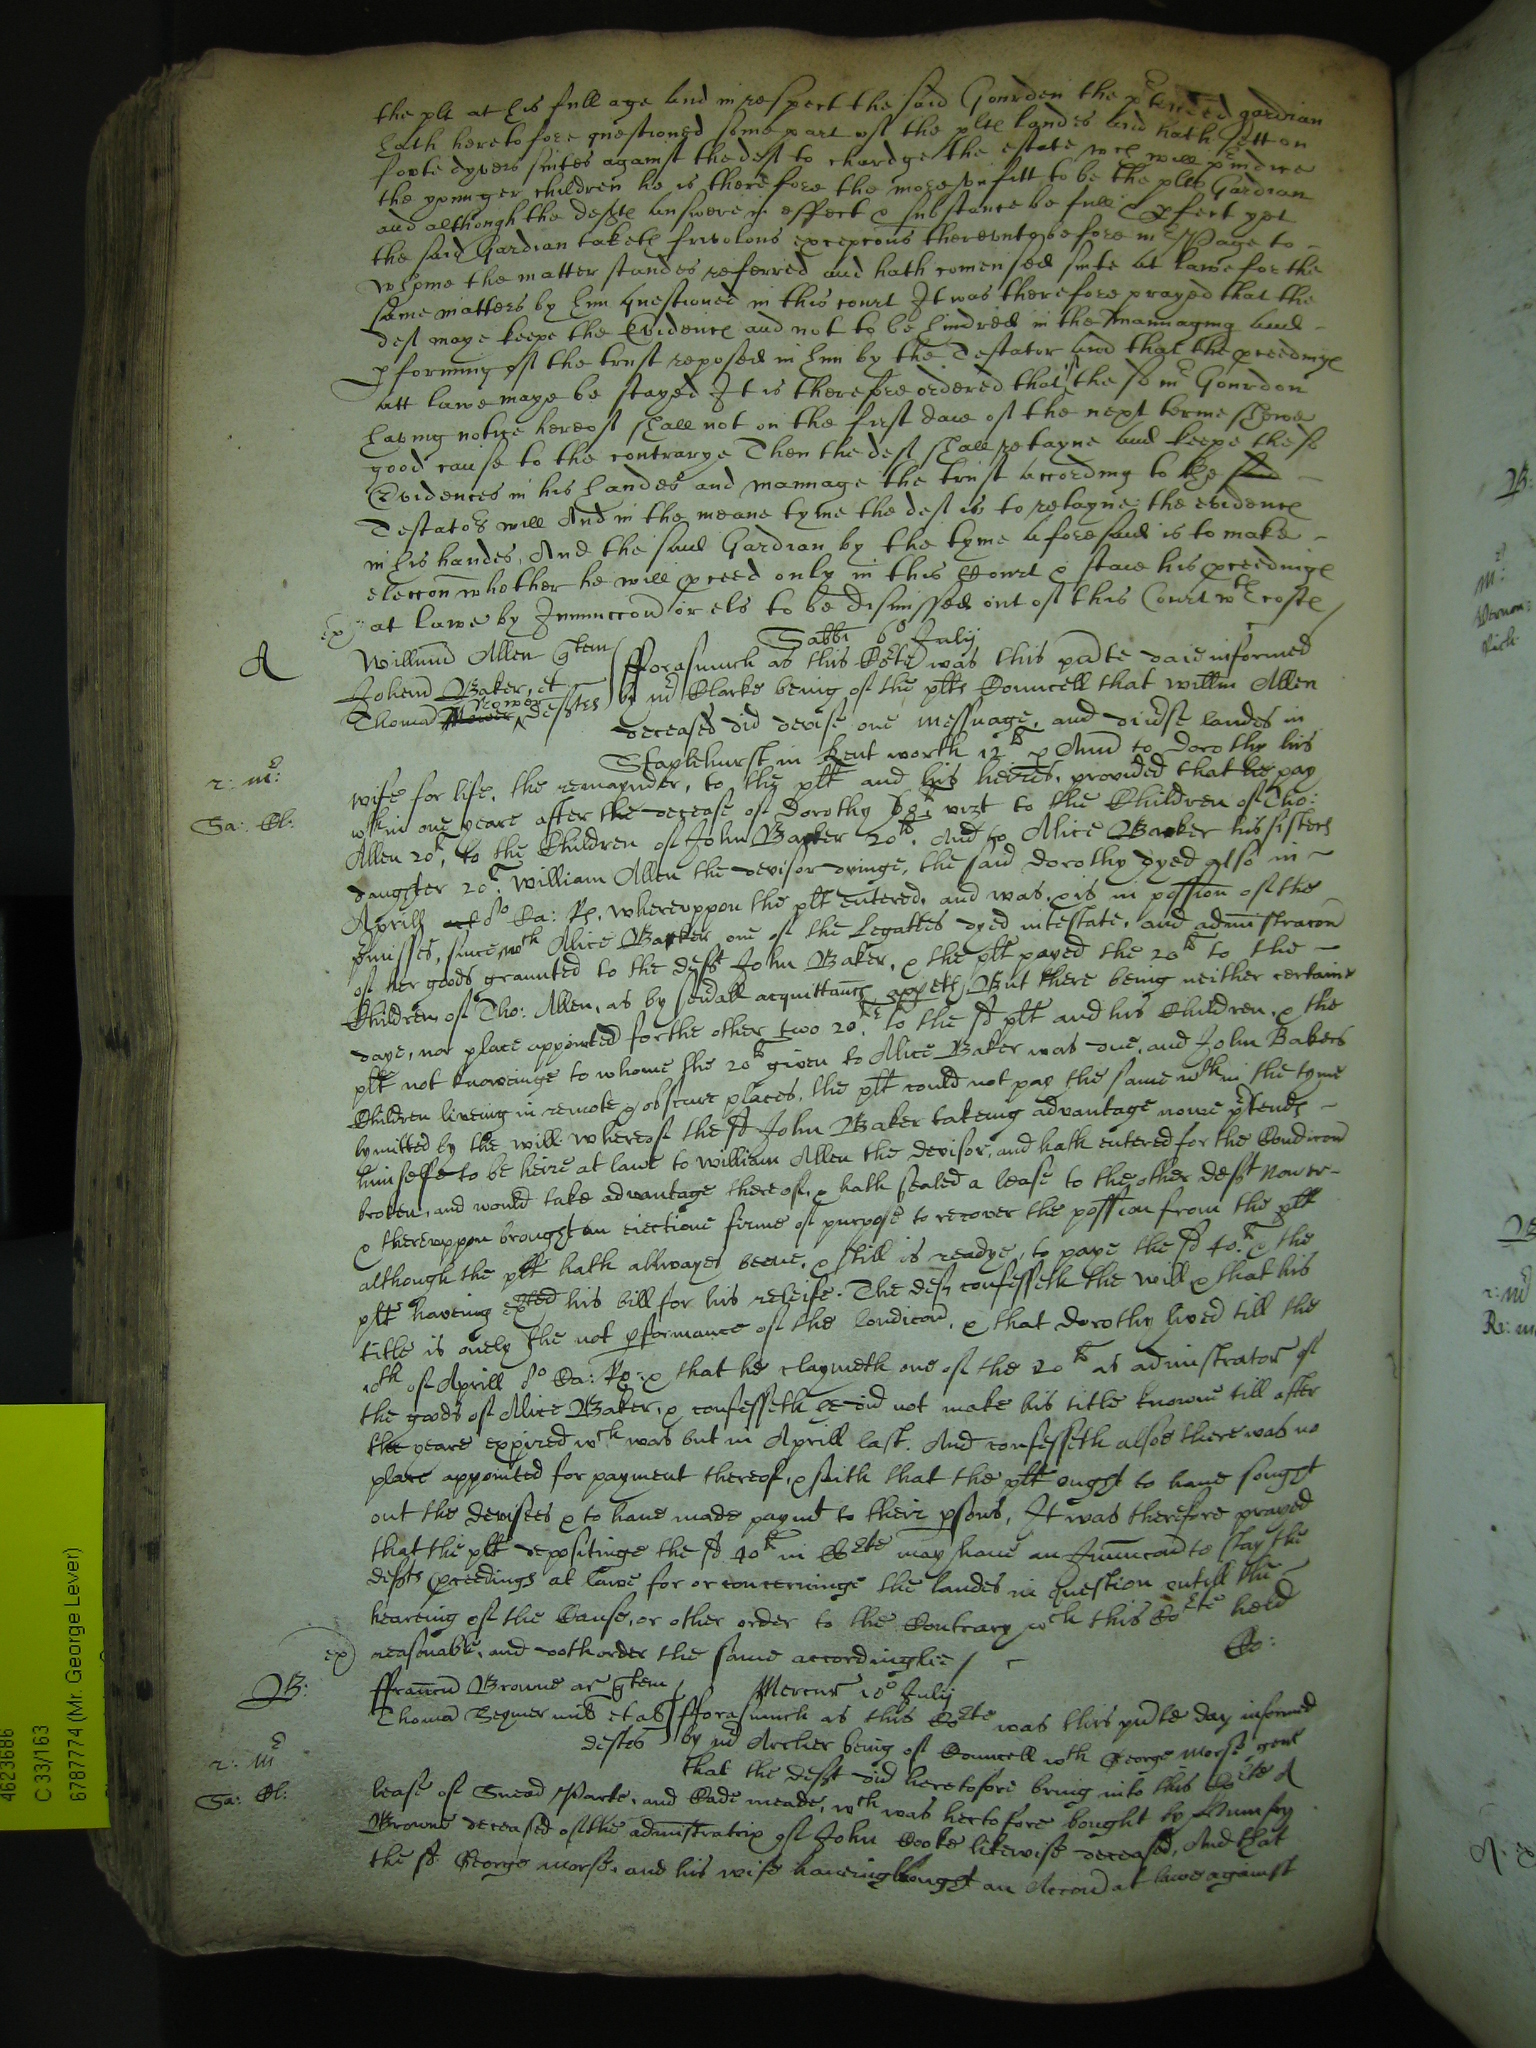 the plt at his full age And in respect the said Gourden the ptended gardian
hath heretofore questioned some part of the pltes landes And hath sett on
foote dyvers suites against the deft to chardge the estate wch will preiudice
the yonnger children he is therefore the more vnfitt to be the plts Gardian
and although the deftes Answere in effect & substance be full & pfect yet
the said Gardian taketh frivolous excepcons therevnto before mr Page to
whome the matter standes referred and hath comensed suite at lawe for the
same matters by him questioned in this court It was therefore prayed that the
deft maye keepe the Evidence and not to be hindred in the mannaging and
pforming of the trust reposed in him by the Testator And that the pceedinges
att lawe maye be stayed It is therefore ordered that if the sd mr Gourdon
having notice hereof shall not on the first daie of the next terme shewe
good cause to the contrarye Then the deft shall retayne and keepe the sd
Evidences in his handes and mannage the trust according to the said
Testators will And in the meane tyme the deft is to retayne the evidences
in his handes, And the said Gardian by the tyme aforesaid is to make
eleccon whether he will pceed only in this Court & staie his pceedinges
ex) at lawe by Iniunccon or els to be dismissed out of this Court wth costes /
Sabbi 6o Julij
A Willimus Allen quertem
Johem Baker, et
Thomas Mower Nower deftes
fforasmuch as this Corte was this pnte daie informed
by mr Clarke being of the plts Councell that willm Allen
deceased did devise one messuage, and diuerse landes in
Staplehurst in Kent worth 12li p Ann to Dorothy his
r: mr: wife for life, the remaynder, to the plt and his heires, provided that he pay
Sa: Cl: wthin one yeare after the decease of Dorothy 60li vizt to the Children of Tho:
Allen 20li, to the Children of John Baker 20li. And to Alice Baker his sisters
daughter 20li. William Allen the devisor dyinge, the said Dorothy dyed also in
Aprill 8o Ca: Rs. wherevppon the plt entered, and was, & is in possion of the
pmisses, since wch Alice Baker one of the Legattes dyed intestate, and administracon
of her goods graunted to the deft John Baker, & the plt payed the 20li to the
Children of Tho: Allen, as by seuerall acquittances appeth, But there being neither certaine
daye, nor place appointed for the other two 20li to the sd plt and his Children, & the
plt not knoweinge to whome the 20li given to Alice Baker was due, and John Bakers
Children liveing in remote & obscure places, the plt could not pay the same wthin the tyme
lymitted by the will whereof the sd John Baker takeing advantage nowe ptends
himselfe to be heire at lawe to William Allen the devisor, and hath entered for the Condicon
broken, and would take advantage thereof, & hath sealed a lease to the other deft Nower
& therevppon brought an eiectione firme of purpose to recover the possion from the plt
although the plt hath allwayes beene, & still is readye, to paye the sd 40li & the
plt haveing exted his bill for his releife. The deft confesseth the will & that his
title is onely the not pformance of the Condicon, & that Dorothy lived till the
10th of Aprill 8o Ca: Rs: & that he claymeth one of the 20li as administrator of
the goods of Alice Baker, & confesseth he did not make his title knowne till after
the yeare expired wch was but in Aprill last. And confesseth alsoe there was no
place appointed for payment thereof, & saith that the plt ought to haue sought
out the devisees & to haue made paymt to their psons, It was therefore prayed
that the plt depositinge the sd 40li in Corte may haue an Iniuncon to stay the
defts pceedings at lawe for or concerninge the landes in question vntill the
heareing of the Cause, or other order to the Contrary wch this Corte held
ex) reasonable, and doth order the same accordinglie / Co:
Mercur 10o Julij
B: ffrancus Browne ar quertem
Thomas Seymer mil et al
deftes
fforasmuch as this Corte was this pnte day informed
by mr Archer being of Councell wth George Morse gent
r: mr that the deft did heretofore bring into this Corte A
Sa: Cl: lease of Snead Parke, and Cade meade, wch was hertofore bought by Humfry
Browne deceased of the administratrix of John Cooke likewise deceased, And that
the sd George Morse, and his wife haveing brought an Accon at lawe against
4623686
C 33/163
6787774 (Mr. George Lever)